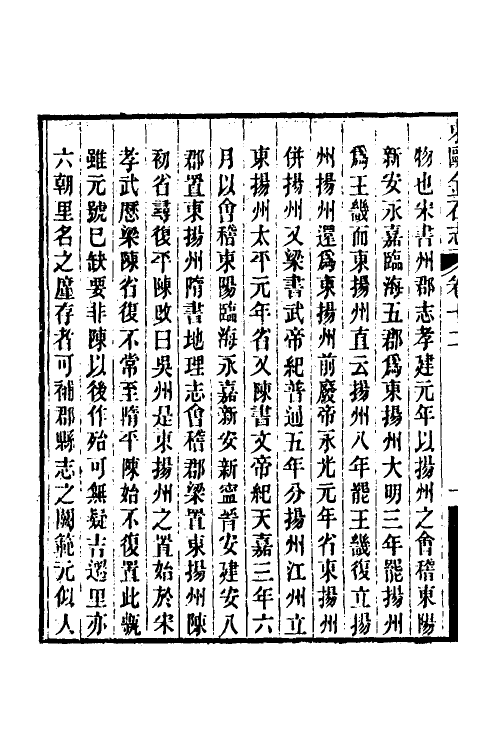 東甌金石志 卷十二
物也宋書州郡志孝建元年以揚州之會稽東陽
新安永嘉臨海五郡為東揚州大明三年罷揚州
為王畿而東揚州直云揚州八年罷王畿復立揚
州揚州還為東揚州前廢帝永光元年省東揚州
併揚州又梁書武帝紀普通五年分揚州江州立
東揚州太平元年省又陳書文帝紀天嘉三年六
月以會稽東陽臨海永嘉新安新寧晉安建安八
郡置東揚州隋書地理志會稽郡梁置東揚州陳
初省尋復平陳改曰吳州是東揚州之置始於宋
孝武歷梁陳省復不常至隋平陳始不復置此甎
雖元號已缺要非陳以後作殆可無疑吉遷里亦
六朝里名之廑存者可補郡縣志之闕範元似人